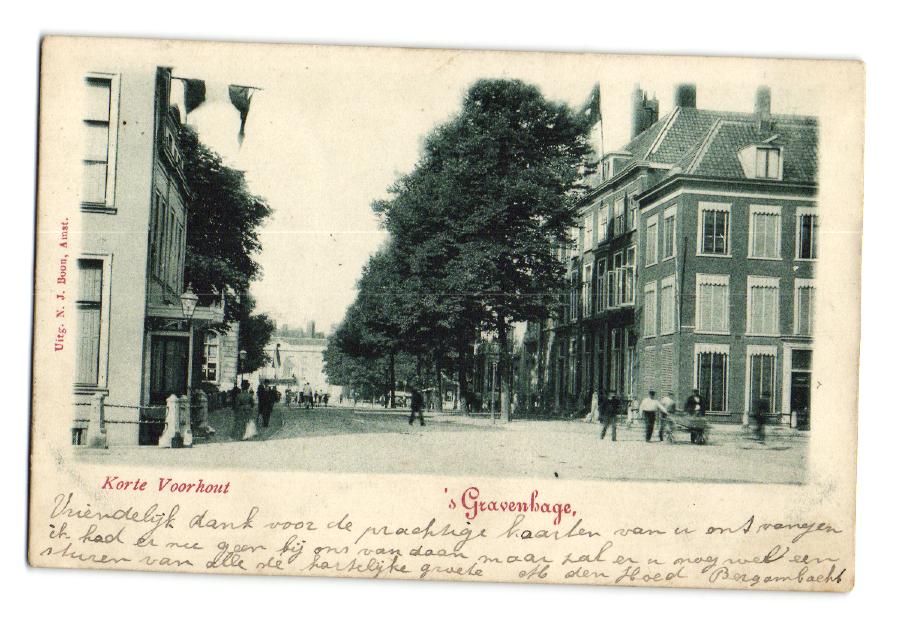 Uitg. N. J. Boon, Amst.
Korte Voorhout
's Gravenhage,
Vriendelijk dank voor de prachtige kaarten van u ontvangen
ik had er nu geen bij ons vandaan maar zal er u nog wel een
sturen van alle de hartelijke groete M den Hoed Bergambacht